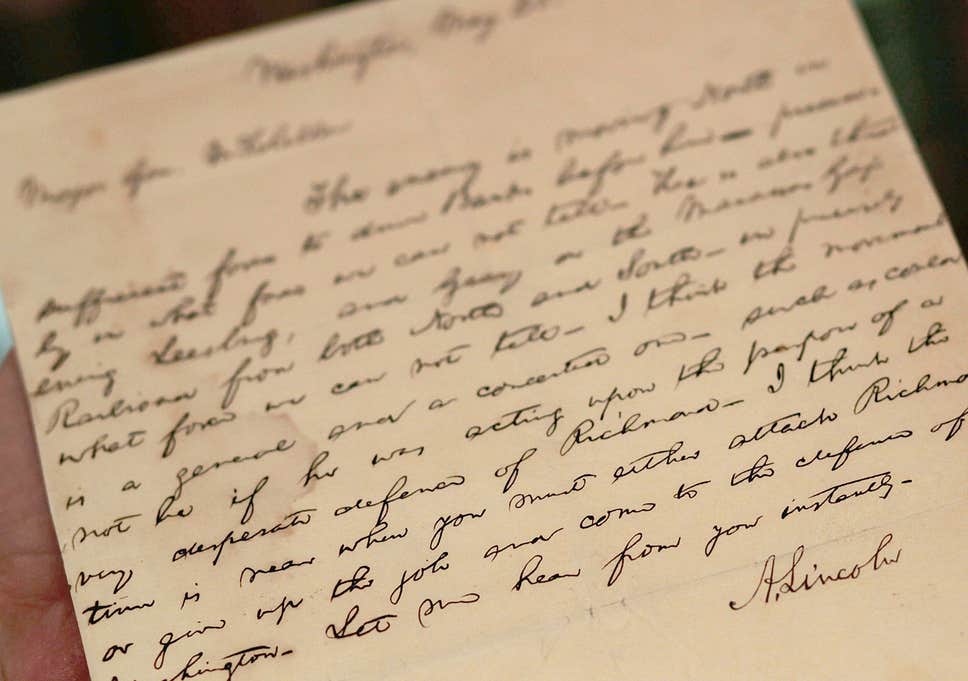 Washington, May 25.
Major Gen. McClellan
The enemy is moving North in
sufficient force to drive Banks before him — precise
ly in what force we can not tell. He is also threat
ening Leesburg, and Geary on the Manassas Gap
Railroad from both North and South — in precisely
what force we can not tell — I think the movement
is a general and a concerted one — such as could
not be if he was acting upon the purpose of a
very desperate defence of Richmond — I think the
time is near when you must either attack Richmo
or give up the job and come to the defence of
shington — Let me hear from you instantly —
A. Lincoln